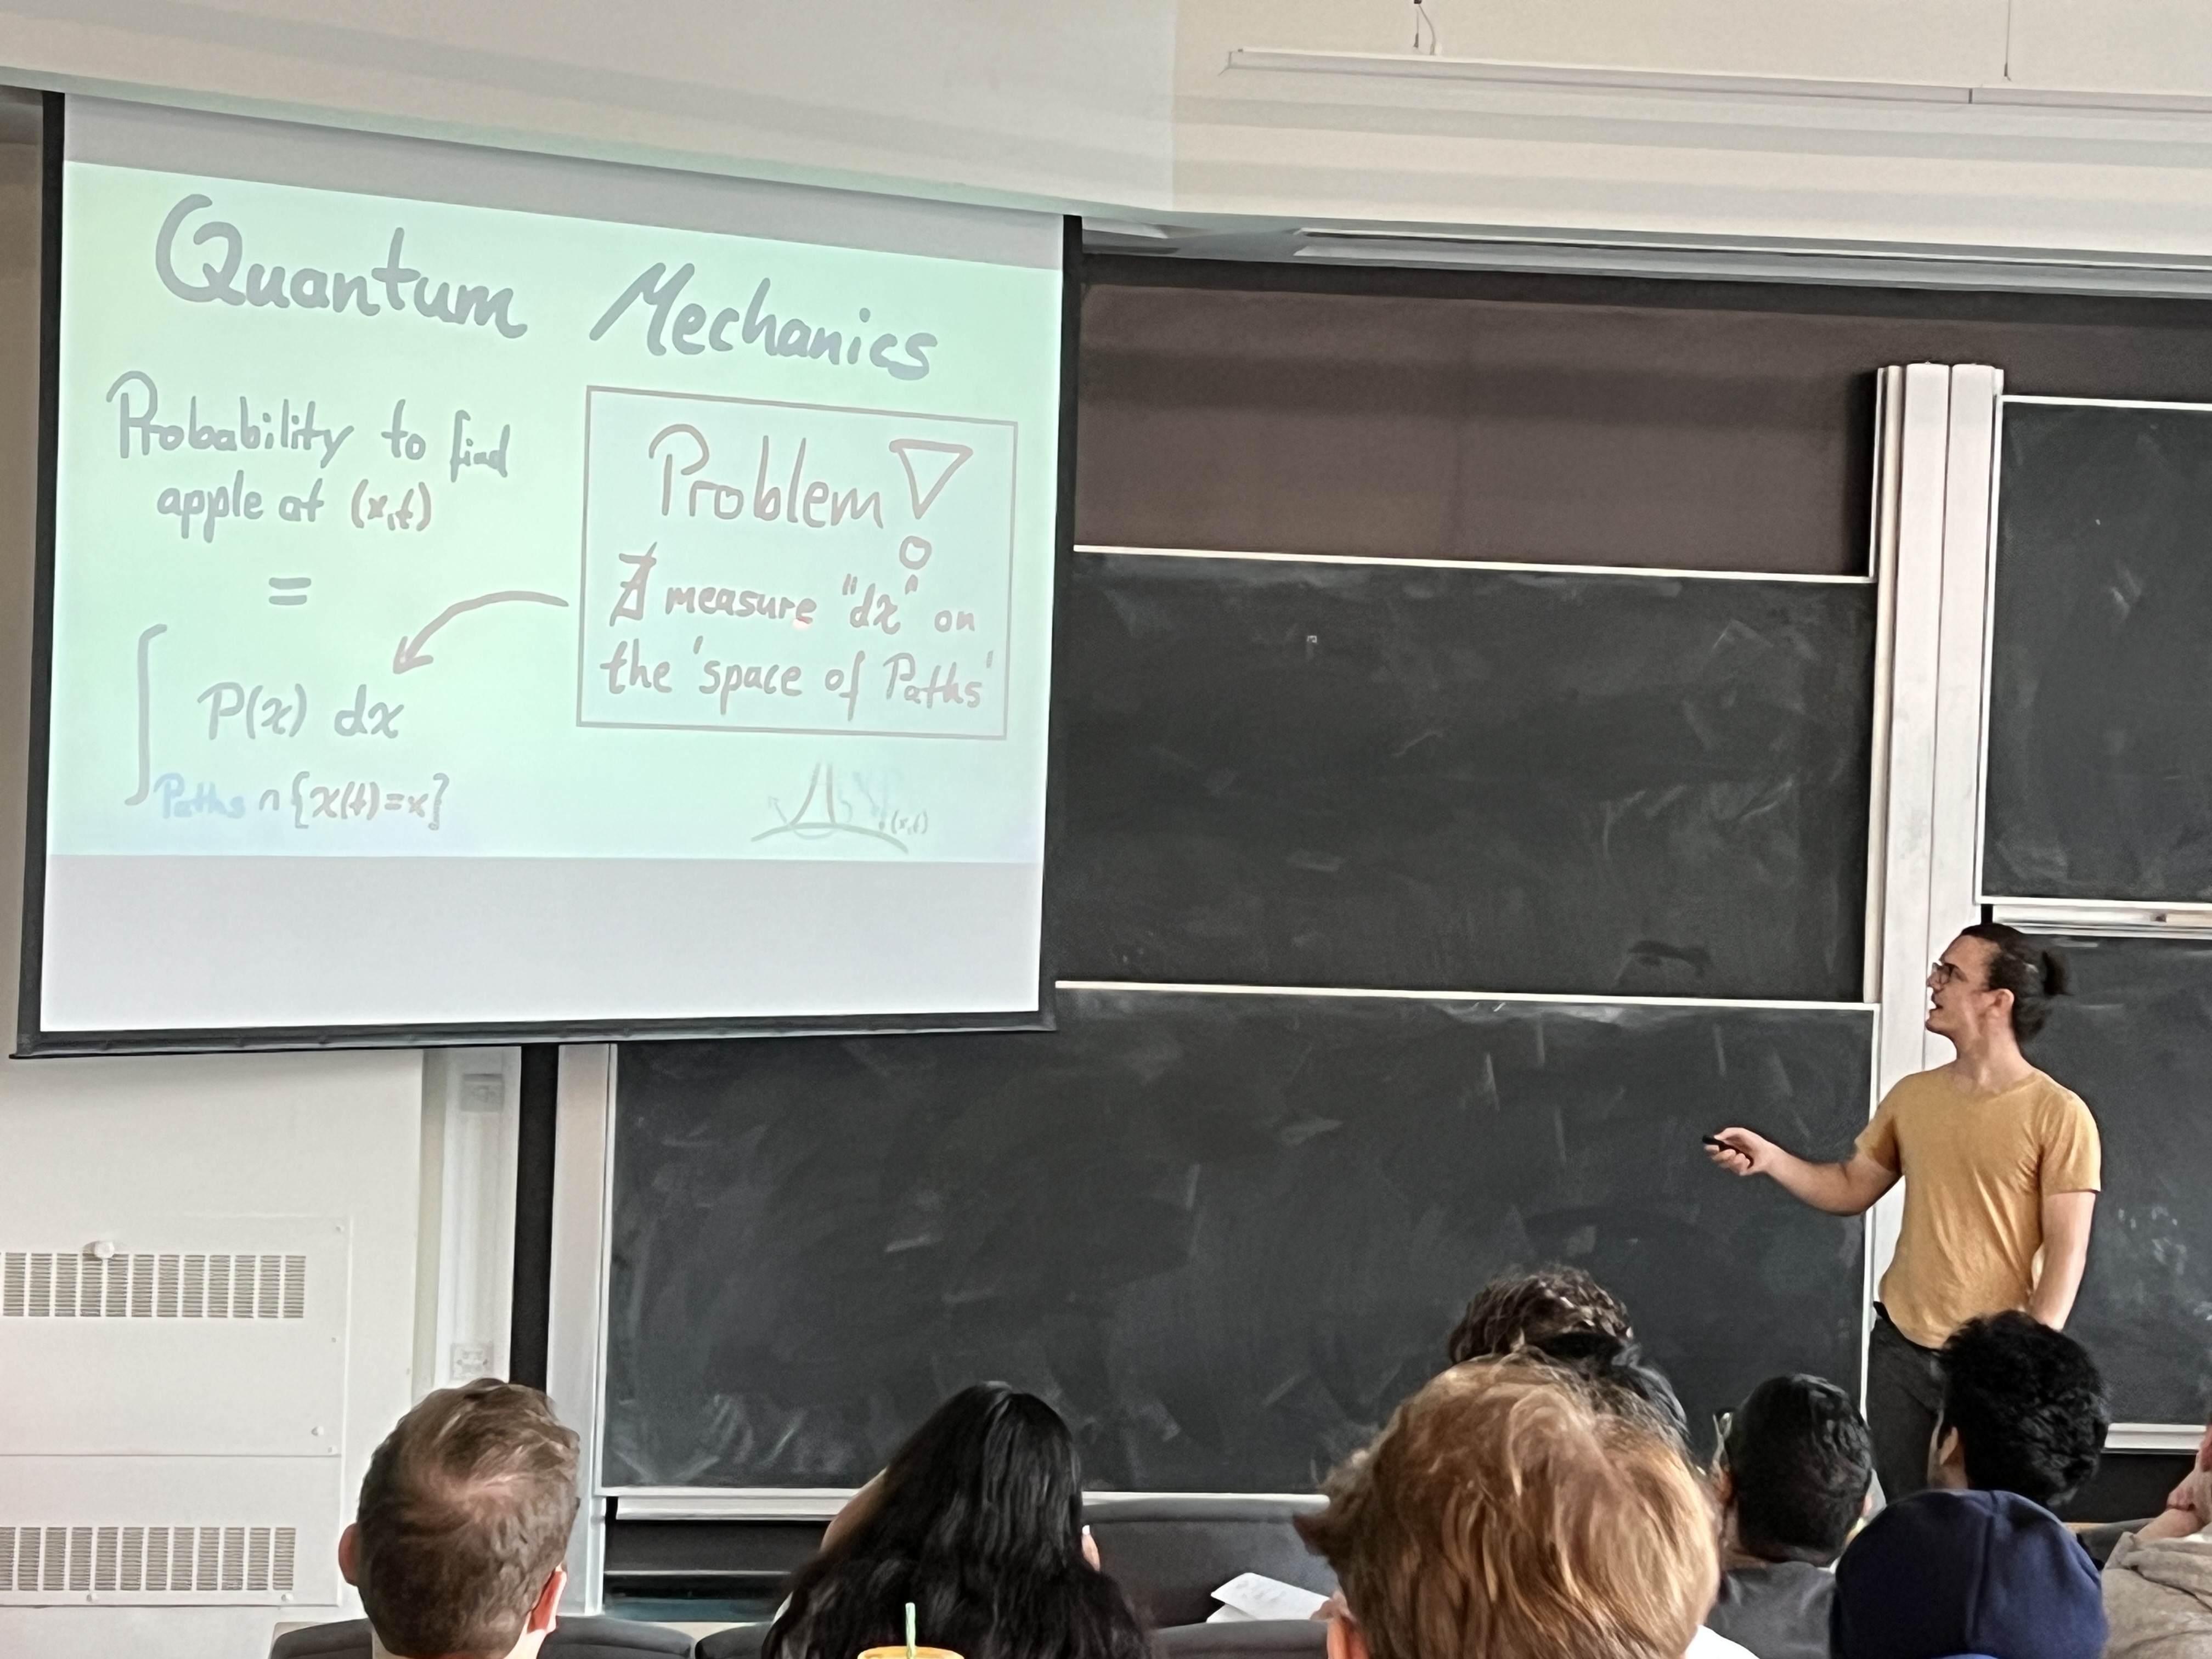 Quantum Mechanics
Probability to find
apple at (x,t)
=
∫ P(x) dx
Paths ∩ {x(t)=x}
Problem!
∄ measure "dx" on
the 'space of Paths'
(x,t)